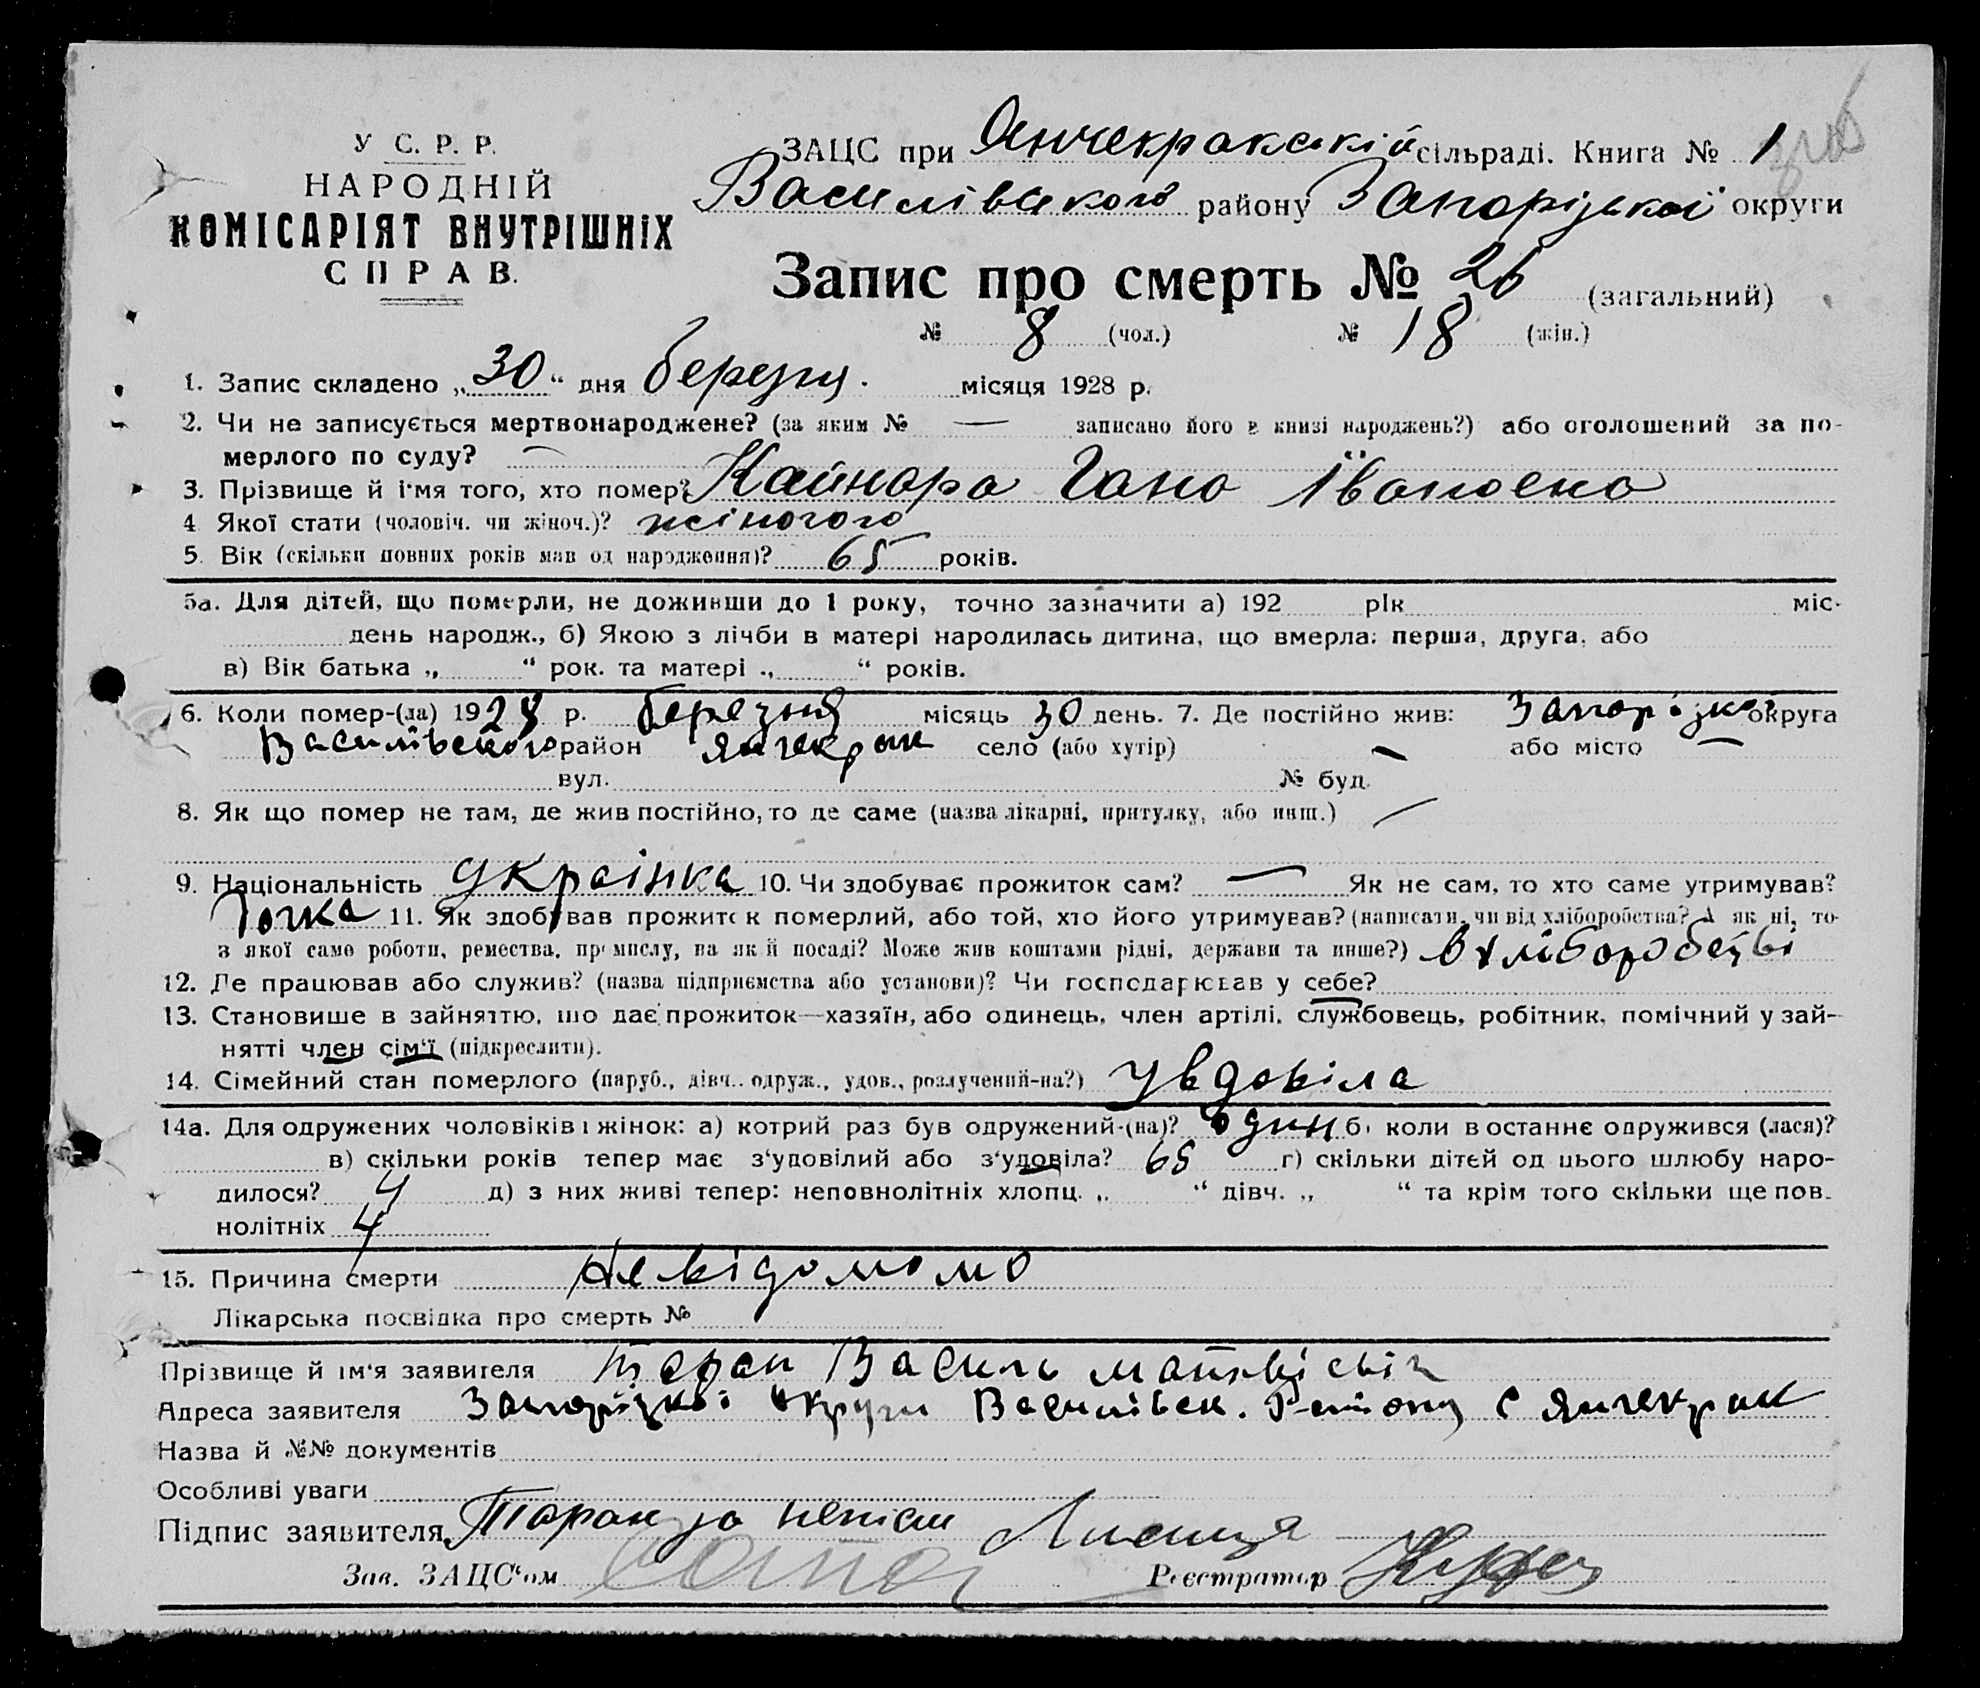 У С. Р. Р.
НАРОДНІЙ
КОМІСАРІЯТ ВНУТРІШНІХ
СПРАВ.
ЗАЦС при Янчекракській сільраді. Книга № 1
Василівського району Запорізької округи
Запис про смерть № 26 (загальний)
№ 8 (чол.) № 18 (жін.)
1. Запис складено „30“ дня березня місяця 1928 р.
2. Чи не записується мертвонароджене? (за яким № — записано його в книзі народжень?) або оголошений за по-
мерлого по суду? —
3. Прізвище й і'мя того, хто помер? Кайнара Гана Івановна
4 Якої стати (чоловіч. чи жіноч.)? жіночого
5. Вік (скільки повних років мав од народження)? 65 років.
5а. Для дітей, що померли, не доживши до 1 року, точно зазначити а) 192 рік міс.
день народж., б) Якою з лічби в матері народилась дитина, що вмерла: перша, друга, або
в) Вік батька „ “ рок. та матері „ “ років.
6. Коли помер-(ла) 1928 р. березня місяць 30 день. 7. Де постійно жив: Запорізкої округа
Василівського район Янчекрак село (або хутір) — або місто —
вул. № буд.
8. Як що помер не там, де жив постійно, то де саме (назва лікарні, притулку, або инш.) —
9. Національність Украінка 10. Чи здобуває прожиток сам? — Як не сам, то хто саме утримував?
Дочка 11. Як здобував прожиток померлий, або той, хто його утримував? (написати, чи від хліборобства? А як ні, то
з якої саме роботи, ремества, промислу, на якій посаді? Може жив коштами рідні, держави та инше?) В хліборобстві
12. Де працював або служив? (назва підприємства або установи)? Чи господарював у себе?
13. Становище в зайняттю, що дає прожиток—хазяїн, або одинець, член артілі, службовець, робітник, помічний у зай-
нятті член сім'ї (підкреслити).
14. Сімейний стан померлого (паруб., дівч.. одруж., удов., розлучений-на?) Увдовіла
14а. Для одружених чоловіків і жінок: а) котрий раз був одружений-(на)? один б) коли востаннє одружився (лася)?
в) скільки років тепер має з'удовілий або з'удовіла? 65 г) скільки дітей од цього шлюбу наро-
дилося? 4 д) з них живі тепер: неповнолітніх хлопц. „ “ дівч. „ “ та крім того скільки ще пов.
нолітніх 4
15. Причина смерти Невідомомо
Лікарська посвідка про смерть №
Прізвище й ім'я заявителя Таран Василь
Адреса заявителя Запорізкої округи Василівск. Району с Янчекрак
Назва й №№ документів
Особливі уваги
Підпис заявителя Таран за непісм Лисиця
Зав. ЗАЦС'ом Реєстратор